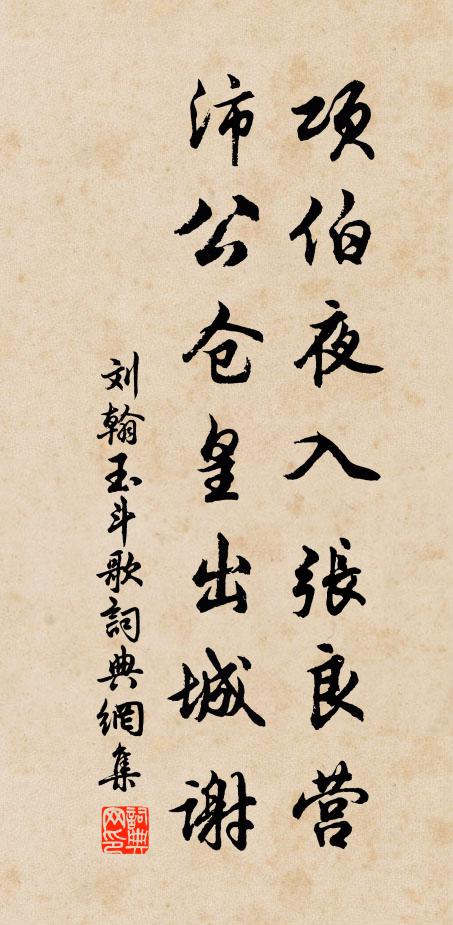 项伯夜入張良营
沛公仓皇出城谢
刘翰玉斗歌詞典網集
詞典网印